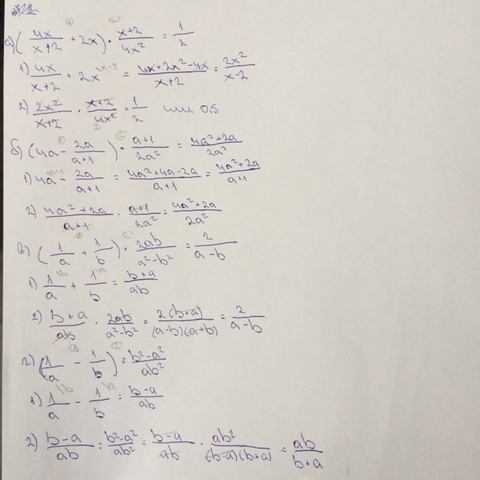 а) (4x/(x+2) + 2x) · (x+2)/4x² = 1/2
1) 4x/(x+2) + 2x = (4x+2x²-4x)/(x+2) = 2x²/(x-2)
2) 2x²/(x+2) · (x+2)/4x² = 1/2 или 0,5
б) (4a - 2a/(a+1)) · (a+1)/2a² = (4a²+2a)/2a²
1) 4a - 2a/(a+1) = (4a²+4a-2a)/(a+1) = (4a²+2a)/(a+1)
2) (4a²+2a)/(a+1) · (a+1)/2a² = (4a²+2a)/2a²
в) (1/a + 1/b) · 2ab/(a²-b²) = 2/(a-b)
1) 1/a + 1/b = (b+a)/ab
2) (b+a)/ab · 2ab/(a²-b²) = 2(b+a)/((a-b)(a+b)) = 2/(a-b)
г) (1/a - 1/b) : (b²-a²)/ab²
1) 1/a - 1/b = (b-a)/ab
2) (b-a)/ab : (b²-a²)/ab² = (b-a)/ab · ab²/((b-a)(b+a)) = ab/(b+a)